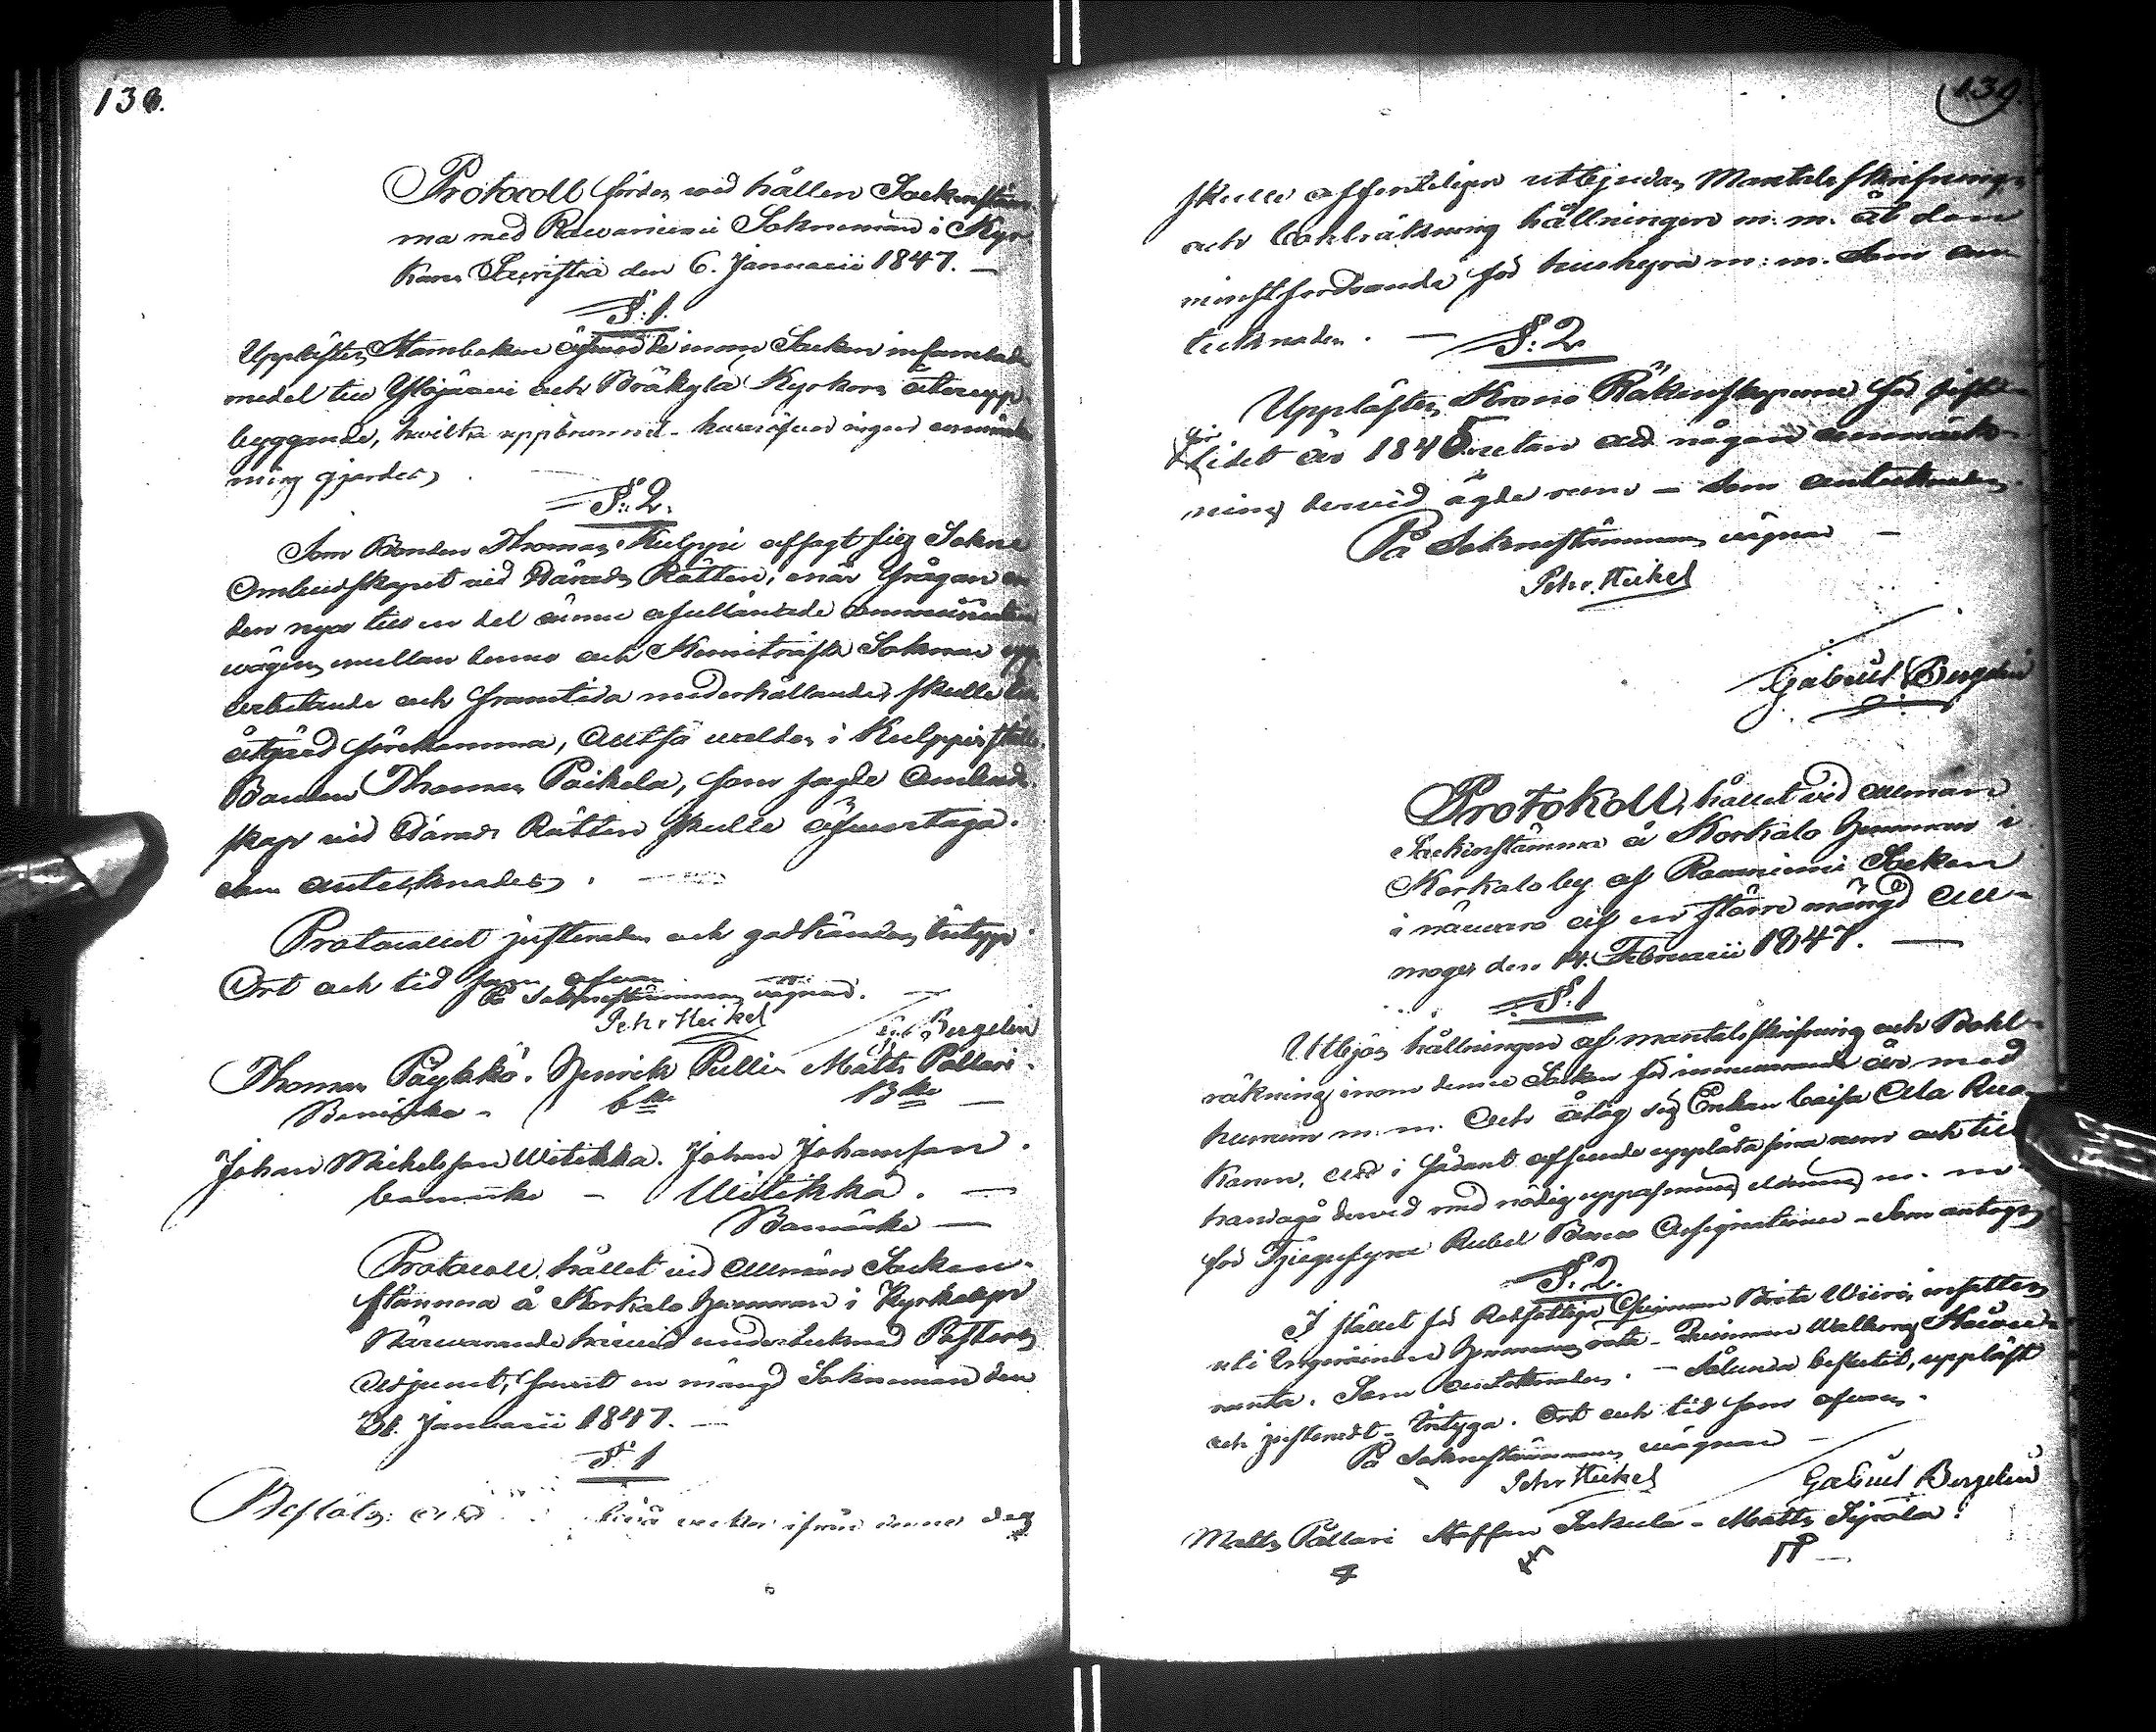 138.
Protocoll fördt wid hållen Sockenstäm-
ma med Rovaniemi Soknemän i Kyr-
kans Sacristia den 6. Januarii 1847. —
§. 1.
Upplästes Stamboken öfver de inom Socken insamlade
medel till Ylöjärvi och Bräkylä Kyrkors återupp-
byggande, hvilka uppbrunnit - hvaröfver ingen anmärk-
ning gjordes
§. 2.
Som Bonden Thomas Kulppi afsagt sig Sokne
Ombudskapet vid Härads Rätten, enär frågan om
den nya till en del ännu
vägen mellan denna och Kemiträsk Soknar upp-
arbetande och framtida underhållande, skulle till
åtgärd förekomma, Altså valdes i Kulppis ställe
Bonden Thomas Paikela, som sagde Ombud-
skap vid Härads Rätten skulle öfvertaga.
som antecknades.
Protocollet justerades och godkändes, betygar
Ort och tid som ofvan
På Soknestämmans vägnar.
Pehr Heikel
Gab. Bergelin
Thomas Påykkö. Henrik Pulli. Matts Pållari.
Bomärke - bke Bke —
Johan Michelsson Witikka. Johan Johansson
bomärke - Witikka. —
Bomärke —
Protocoll, hållet vid allmän Socken-
stämma å Korkalo hemman i Kyrkobyn
Närvarande härvid undertecknad Pastors
Adjunct, samt en mängd Soknemän den
31. Januarii 1847. —
§. 1
Beslöts: att ifrån denna dag
139.
skulle offentligen utbjudas Mantalsskrifnings
och Bohlräkning hållningen m. m. åt den
minstfordrande för hushyra m: m. Som an-
tecknades. — §. 2.
Upplästes Krono Räkenskaperne för sist-
lidet år 1845 utan att någon anmärk-
ning dervid ägde rum - Som antecknades.
På Soknestämmans vägnar —
Pehr Heikel
Gabriel Bergelin
Protokoll, hållet vid allmän
Sockenstämma å Korkalo hemman i
Korkalo by af Rovaniemi Socken
i närvaro af en större mängd All-
moge, den 14. Februarii 1847. —
§. 1
Utbjöds hållningen af mantalsskrifning och Bohl-
räkning inom denna Socken för innevarande år med
husrum m. m. Och åtog sig Enkan Caisa Ala Ruo-
kanen, att i sådant afseende upplåta sina rum och till-
handagå dervid med nödig uppassning eldning m. m.
för Tjugufyra Rubel Banco Assignationer - Som antogs
§. 2.
I stället för Rotfattige Qvinnan Brita Wiiri, insattes
uti hemmans rote - Qvinnan Walborg
ranta. Som antecknades. - Sålunda beslutit, uppläst
och justeradt - betyga. Ort och tid som ofvan.
På Soknestämmans vägnar —
Pehr Heikel
Gabriel Bergelin
Matts Pållari Staffan Jokula - Matts Sipola.